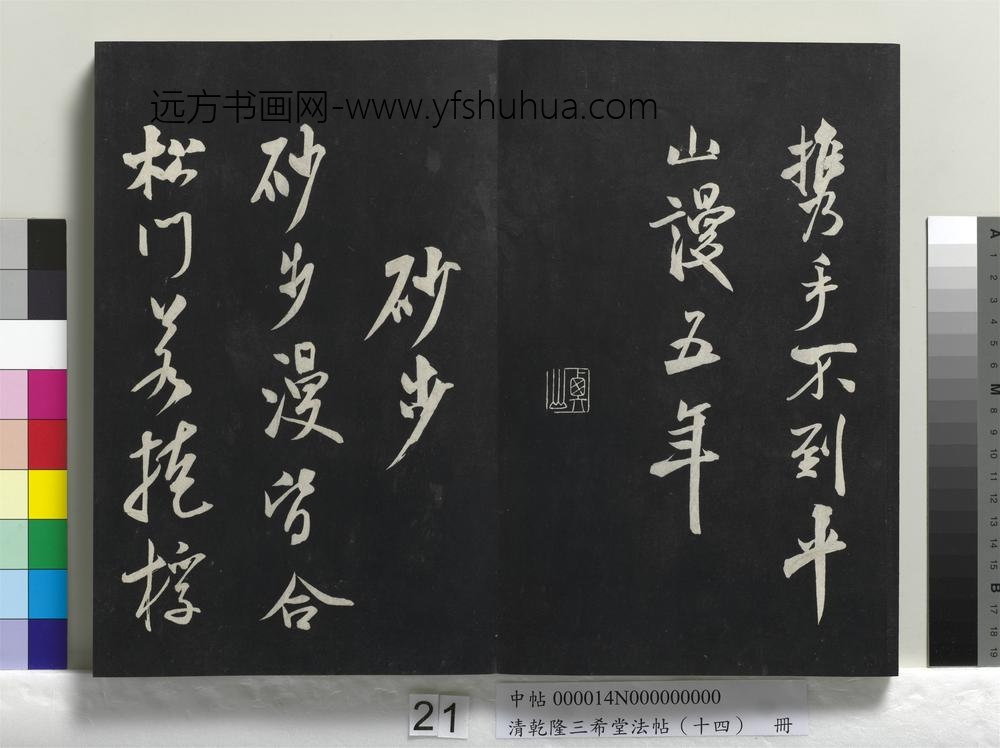 远方书画网-www.yfshuhua.com
攜手不到平
山謾五年
砂步
砂步漫皆合
松門若掩桴
21
中帖 000014N000000000
清乾隆三希堂法帖（十四） 冊
A 1 2 3 4 5 6 M 8 9 10 11 12 13 14 15 B 17 18 19